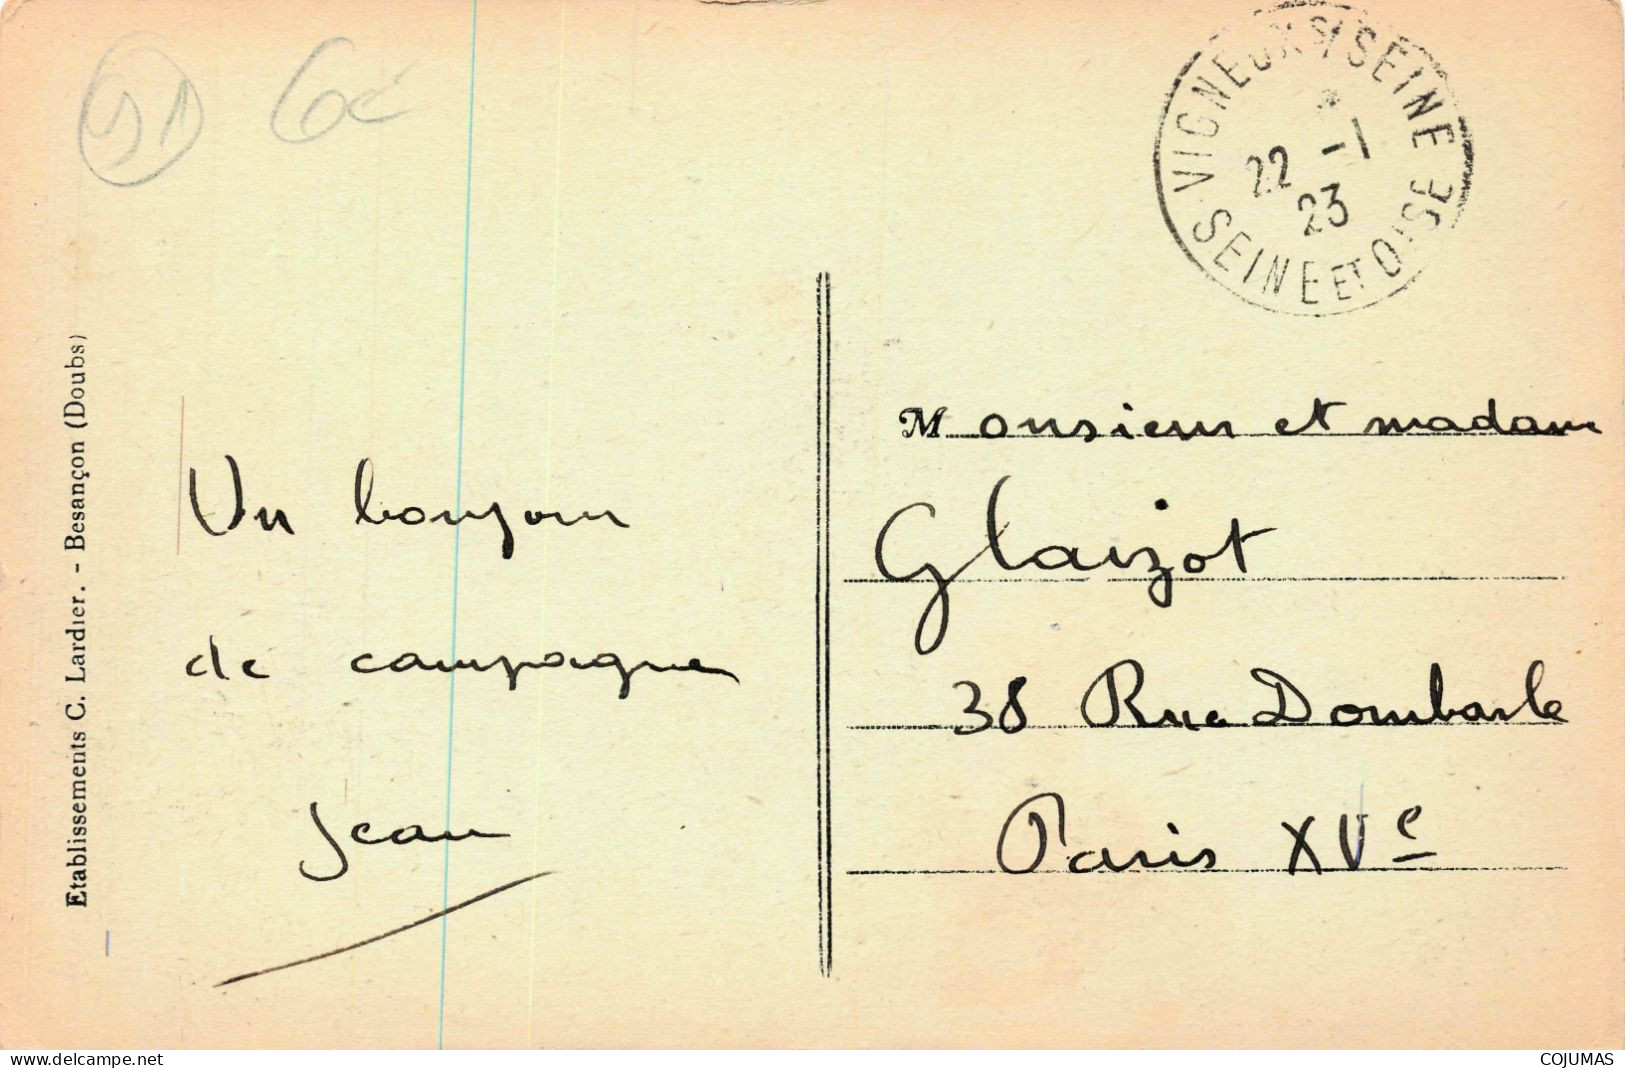 91 6€
VIGNEUX S/ SEINE
22 -1
23
SEINE ET OISE
Etablissements C. Lardier. - Besançon (Doubs)
Un bonjour
de campagne
Jean
Monsieur et madame
Glaizot
38 Rue Dombasle
Paris XVe
delcampe.net
COJUMAS